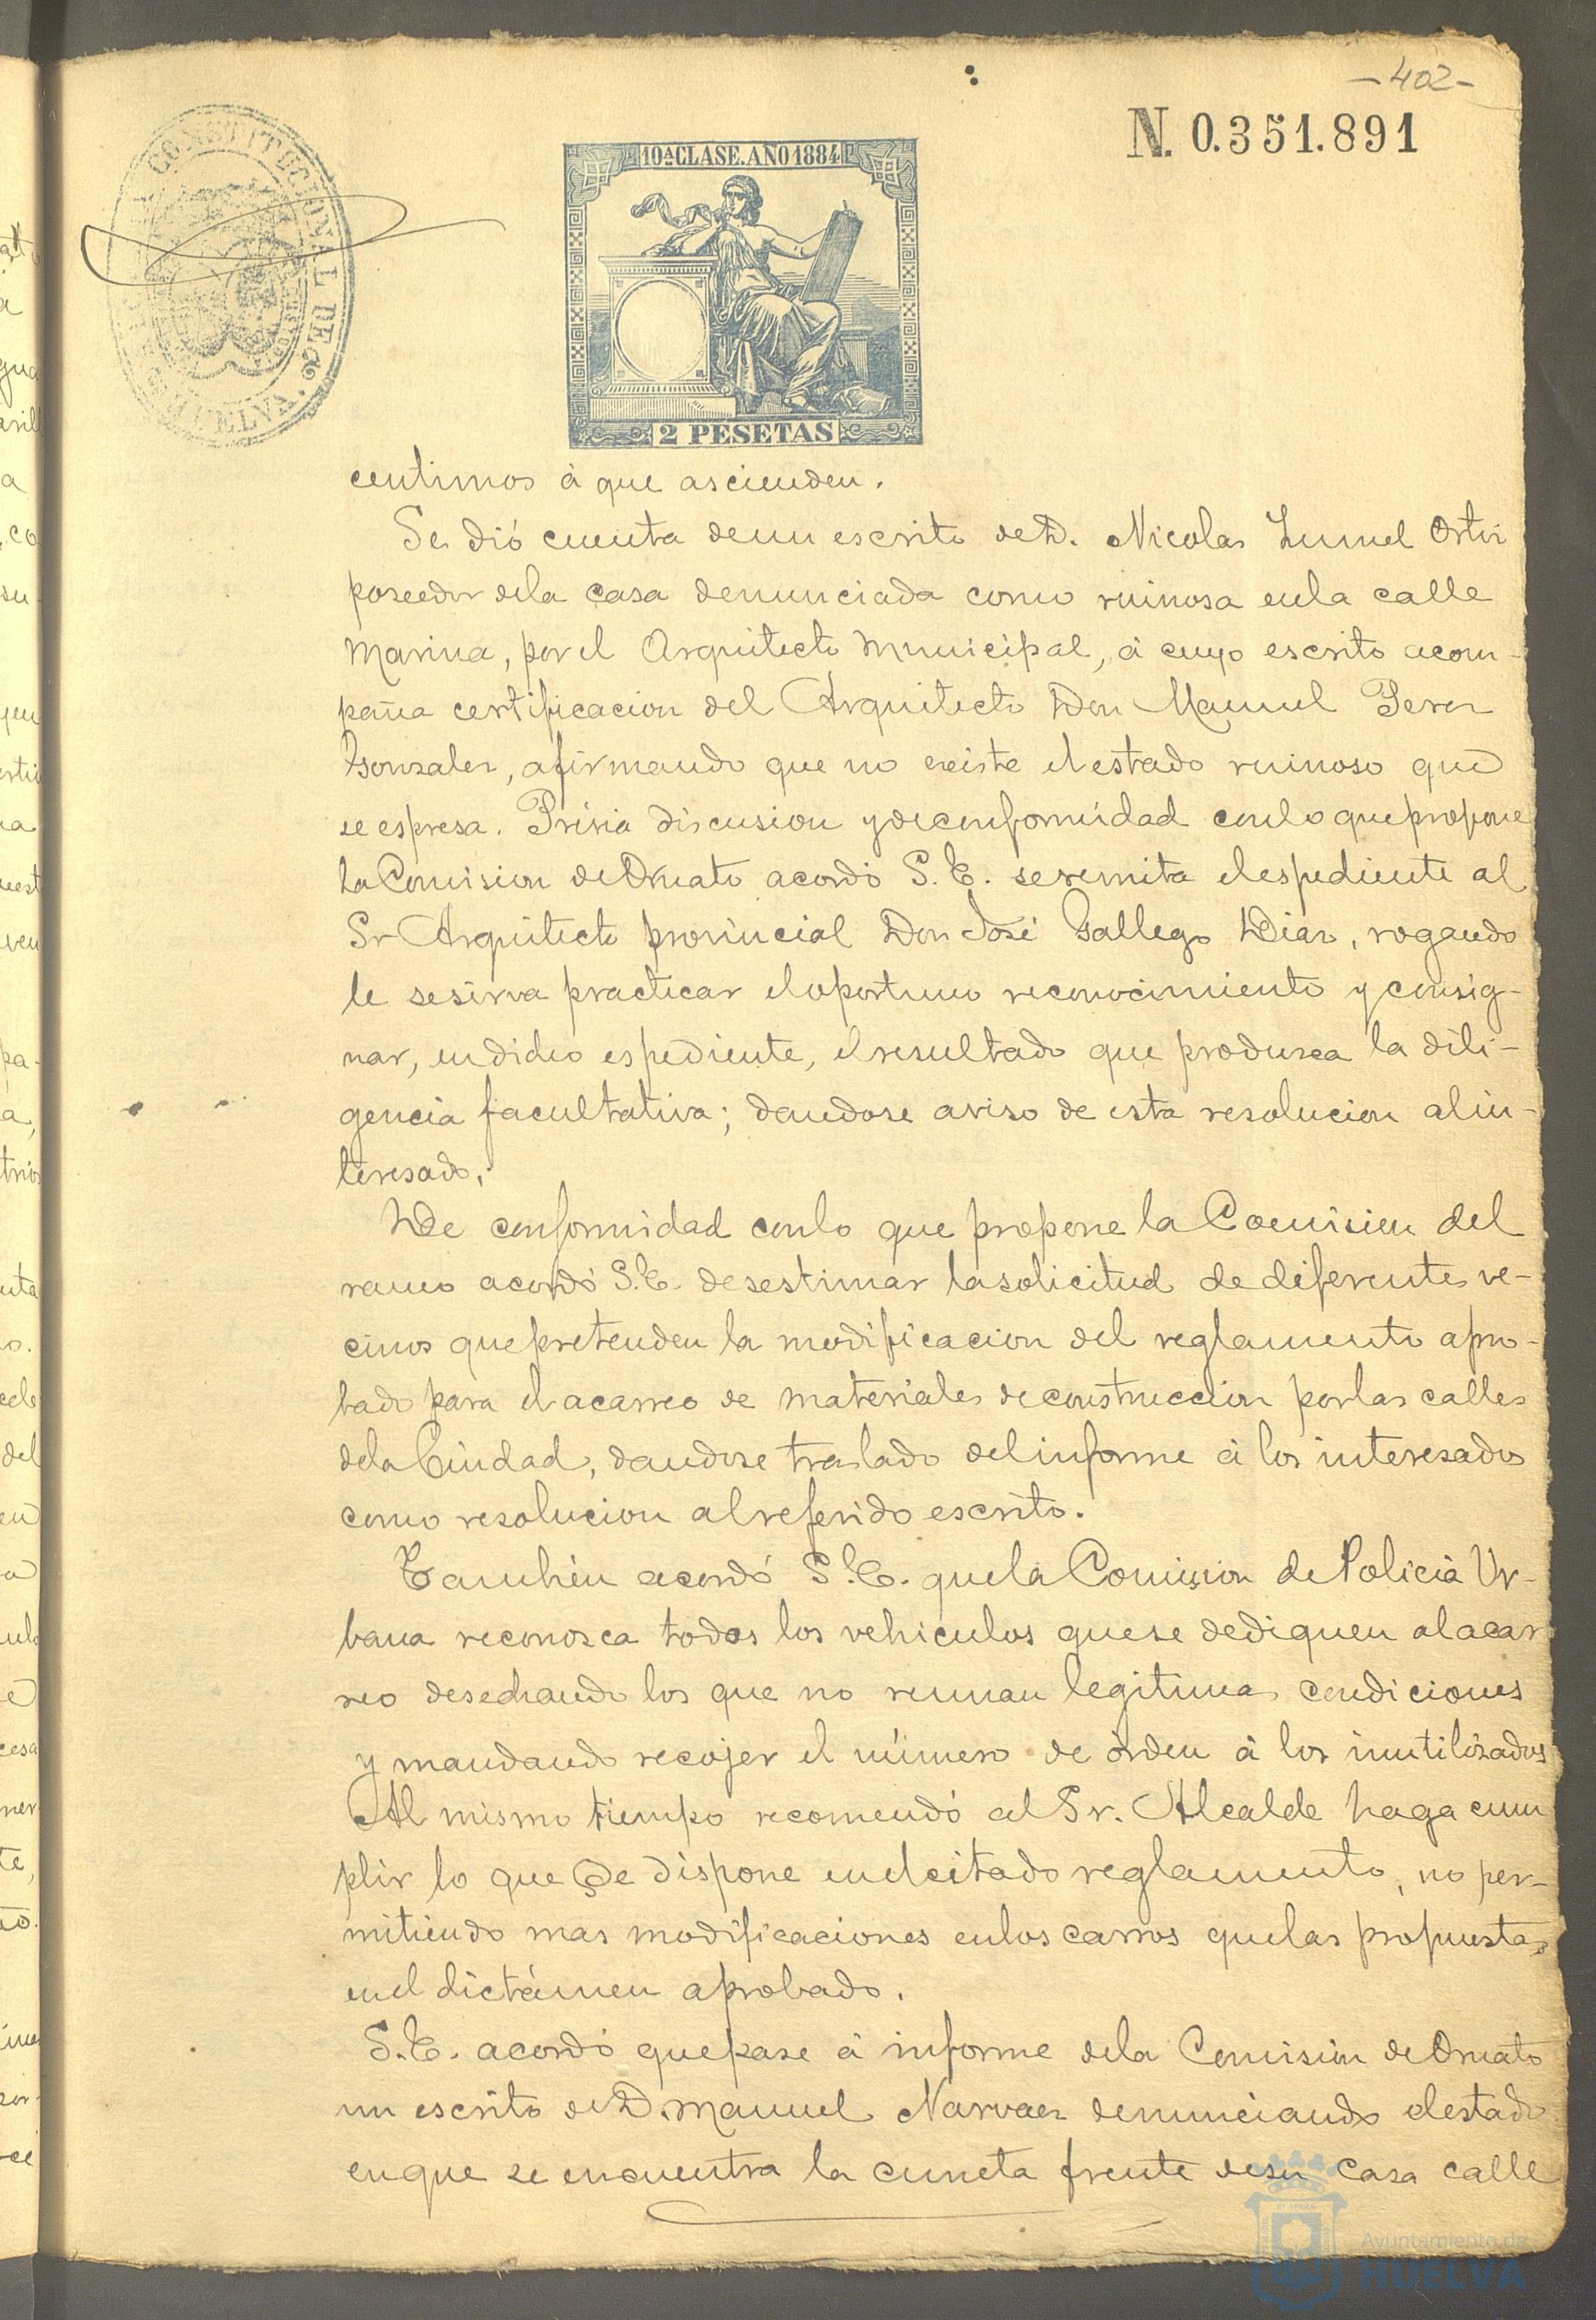 -402-
N. 0.351.891
CONSTITUCIONAL DE
HUELVA.
10ª CLASE. AÑO 1884
2 PESETAS
centimos á que ascienden.
Se dió cuenta de un escrito de D. Nicolas Ortiz
poseedor de la casa denunciada como ruinosa en la calle
Marina, por el Arquitecto Municipal, á cuyo escrito acom-
paña certificacion del Arquitecto Don Manuel Perez
Gonzalez, afirmando que no existe el estado ruinoso que
se espresa. Prévia discusion y de conformidad con lo que propone
la Comision de Ornato acordó S. E. se remita el espediente al
Sr Arquitecto provincial Don José Gallego Diaz, rogando
le se sirva practicar el oportuno reconocimiento y consig-
nar, en dicho espediente, el resultado que produzca la dili-
gencia facultativa; dandose aviso de esta resolucion al in-
teresado.
De conformidad con lo que propone la Comision del
ramo acordó S. E. desestimar la solicitud de diferentes ve-
cinos que pretenden la modificacion del reglamento apro-
bado para el acarreo de materiales de construccion por las calles
de la Ciudad, dandose traslado del informe á los interesados
como resolucion al referido escrito.
Tambien acordó S. E. que la Comision de Policia Ur-
bana reconosca todos los vehiculos que se dediquen al acar
reo desechando los que no reunan legitimas condiciones
y mandando recojer el número de órden á los inutilizados
Al mismo tiempo recomendó al Sr. Alcalde haga cum
plir lo que se dispone en el citado reglamento, no per-
mitiendo mas modificaciones en los carros que las propuestas
en el dictámen aprobado.
S. E. acordó que pase á informe de la Comision de Ornato
un escrito de D. Manuel Narvaez denunciando el estado
en que se encuentra la cuneta frente de su casa calle
Ayuntamiento de
HUELVA